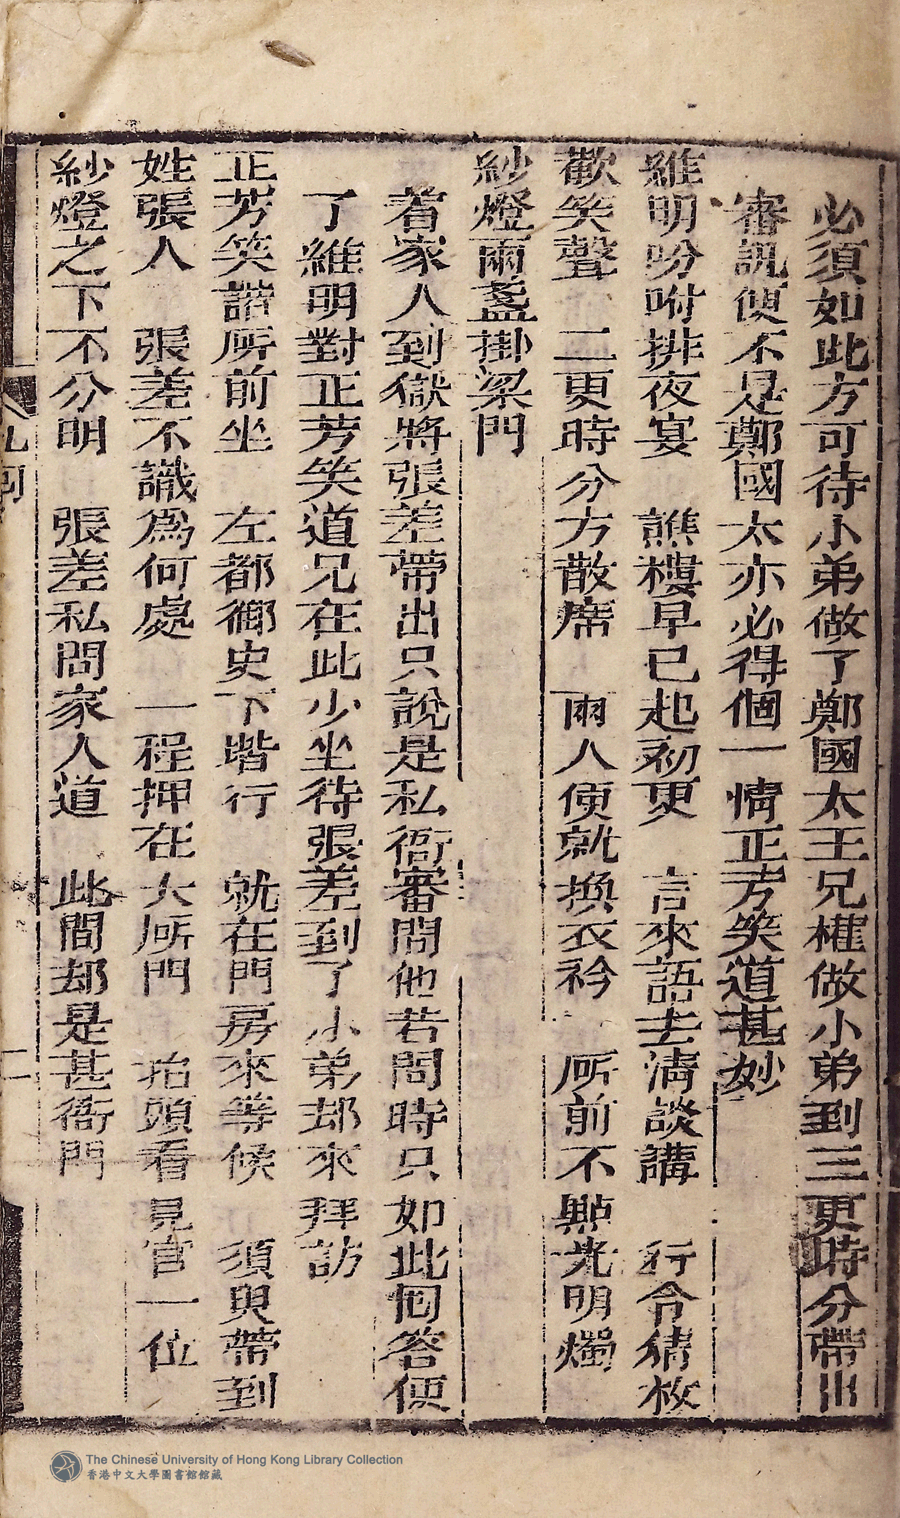 必須如此方可待小弟做了鄭國太王兄權做小弟到三更時分帶出
審訊便不是鄭國太亦必得個一情正芳笑道甚妙
維明吩咐排夜宴　譙樓早已起初更　言來語去清談講　行令猜枚
歡笑聲　二更時分方散席　兩人便就換衣衿　所前不點光明燭
紗燈兩盞掛梁門
着家人到獄將張差帶出只說是私衙審問他若問時只如此囘答便
了維明對正芳笑道兄在此少坐待張差到了小弟却來拜訪
正芳笑諧所前坐　左都御史下堦行　就在門房來等候　須臾帶到
姓張人　張差不識為何處　一程押在大所門　抬頭看見官一位
紗燈之下不分明　張差私問家人道　此間却是甚衙門
The Chinese University of Hong Kong Library Collection
香港中文大學圖書館館藏